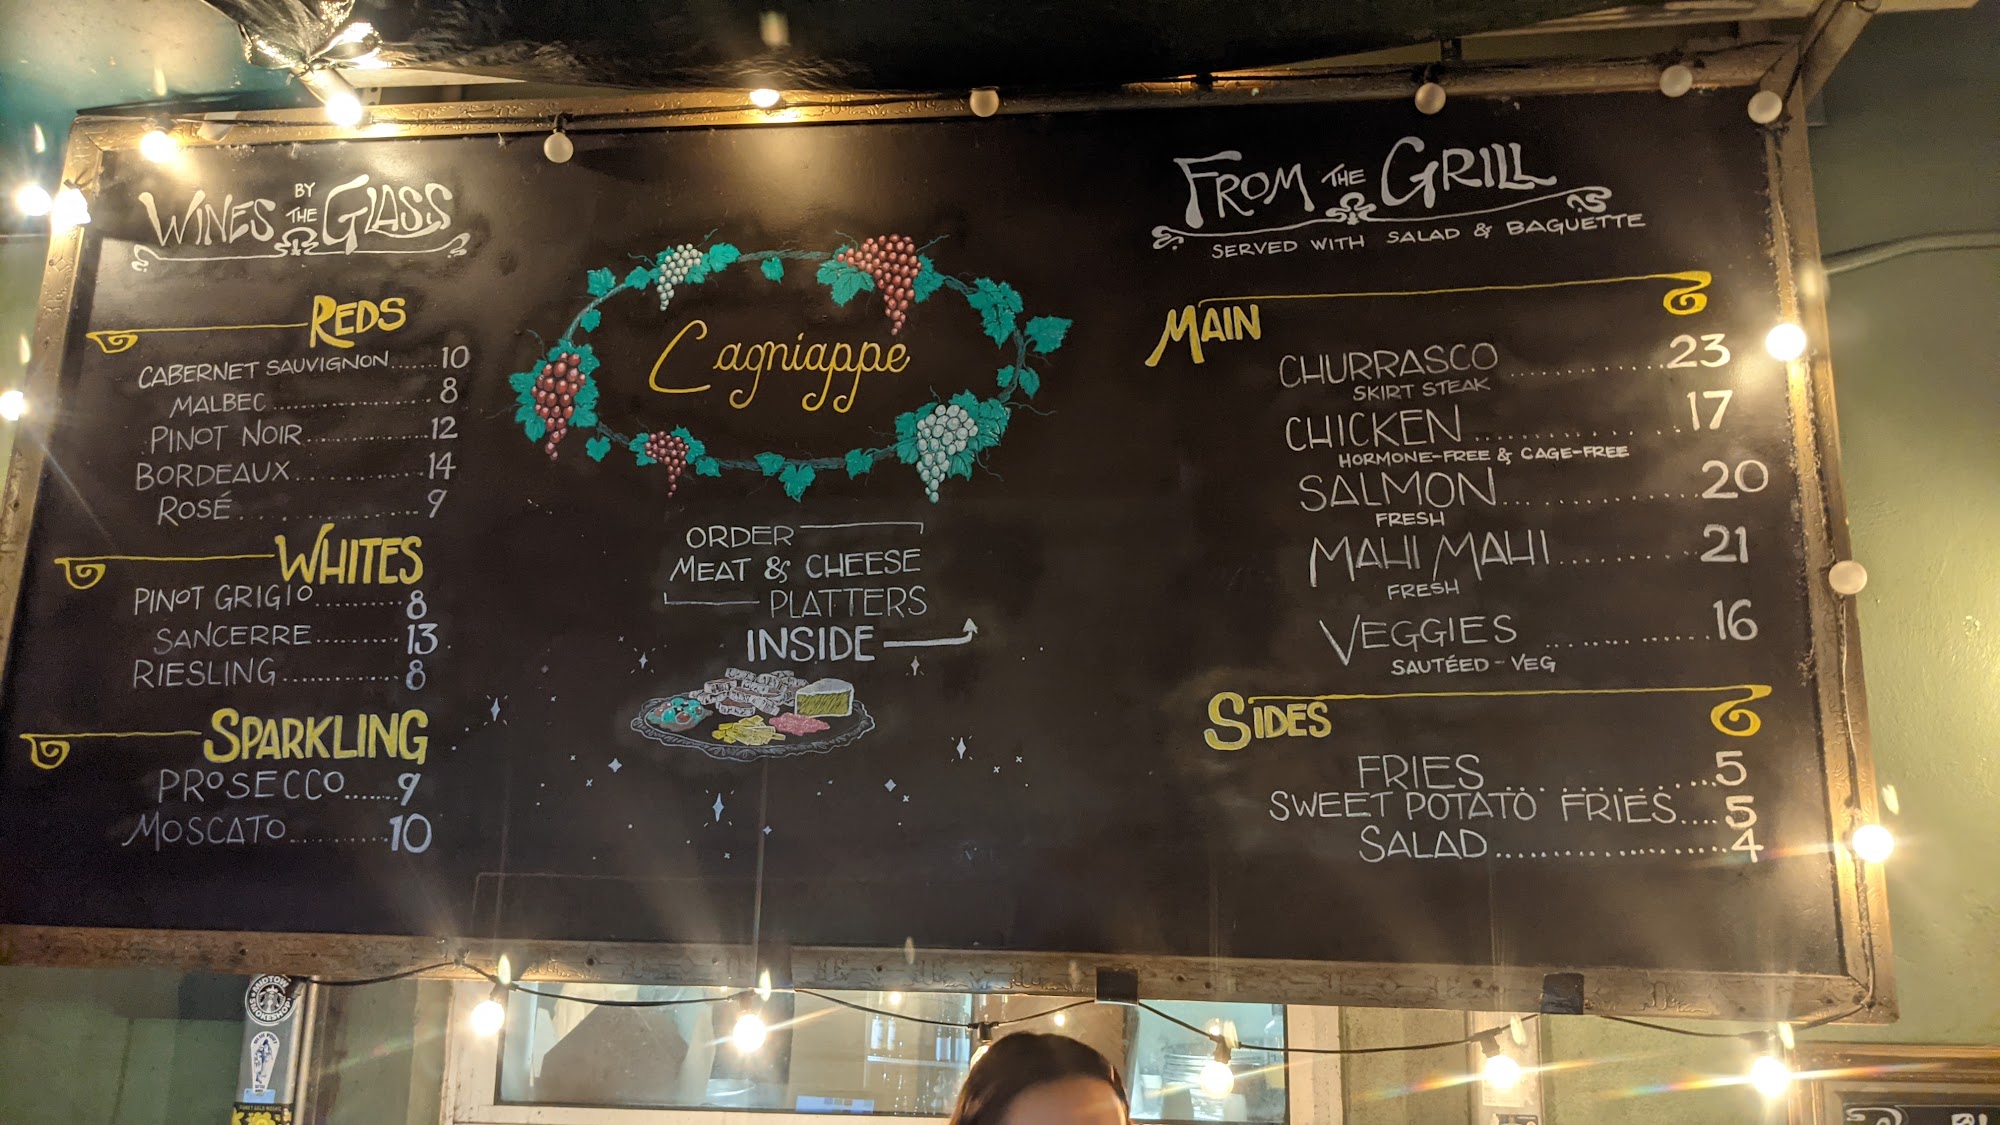 WINES BY THE GLASS
REDS
CABERNET SAUVIGNON.......10
MALBEC.......8
PINOT NOIR.......12
BORDEAUX.......14
ROSÉ.......9
WHITES
PINOT GRIGIO.......8
SANCERRE.......13
RIESLING.......8
SPARKLING
PROSECCO.......9
MOSCATO.......10
Lagniappe
ORDER
MEAT & CHEESE
PLATTERS
INSIDE
FROM THE GRILL
SERVED WITH SALAD & BAGUETTE
MAIN
CHURRASCO.......23
SKIRT STEAK
CHICKEN.......17
HORMONE-FREE & CAGE-FREE
SALMON.......20
FRESH
MAHI MAHI.......21
FRESH
VEGGIES.......16
SAUTÉED-VEG
SIDES
FRIES.......5
SWEET POTATO FRIES....5
SALAD.......4